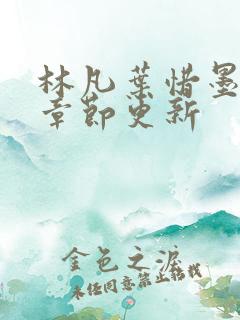 林凡葉惜墨
章節更新
金色之淚
未經同意禁止轉載